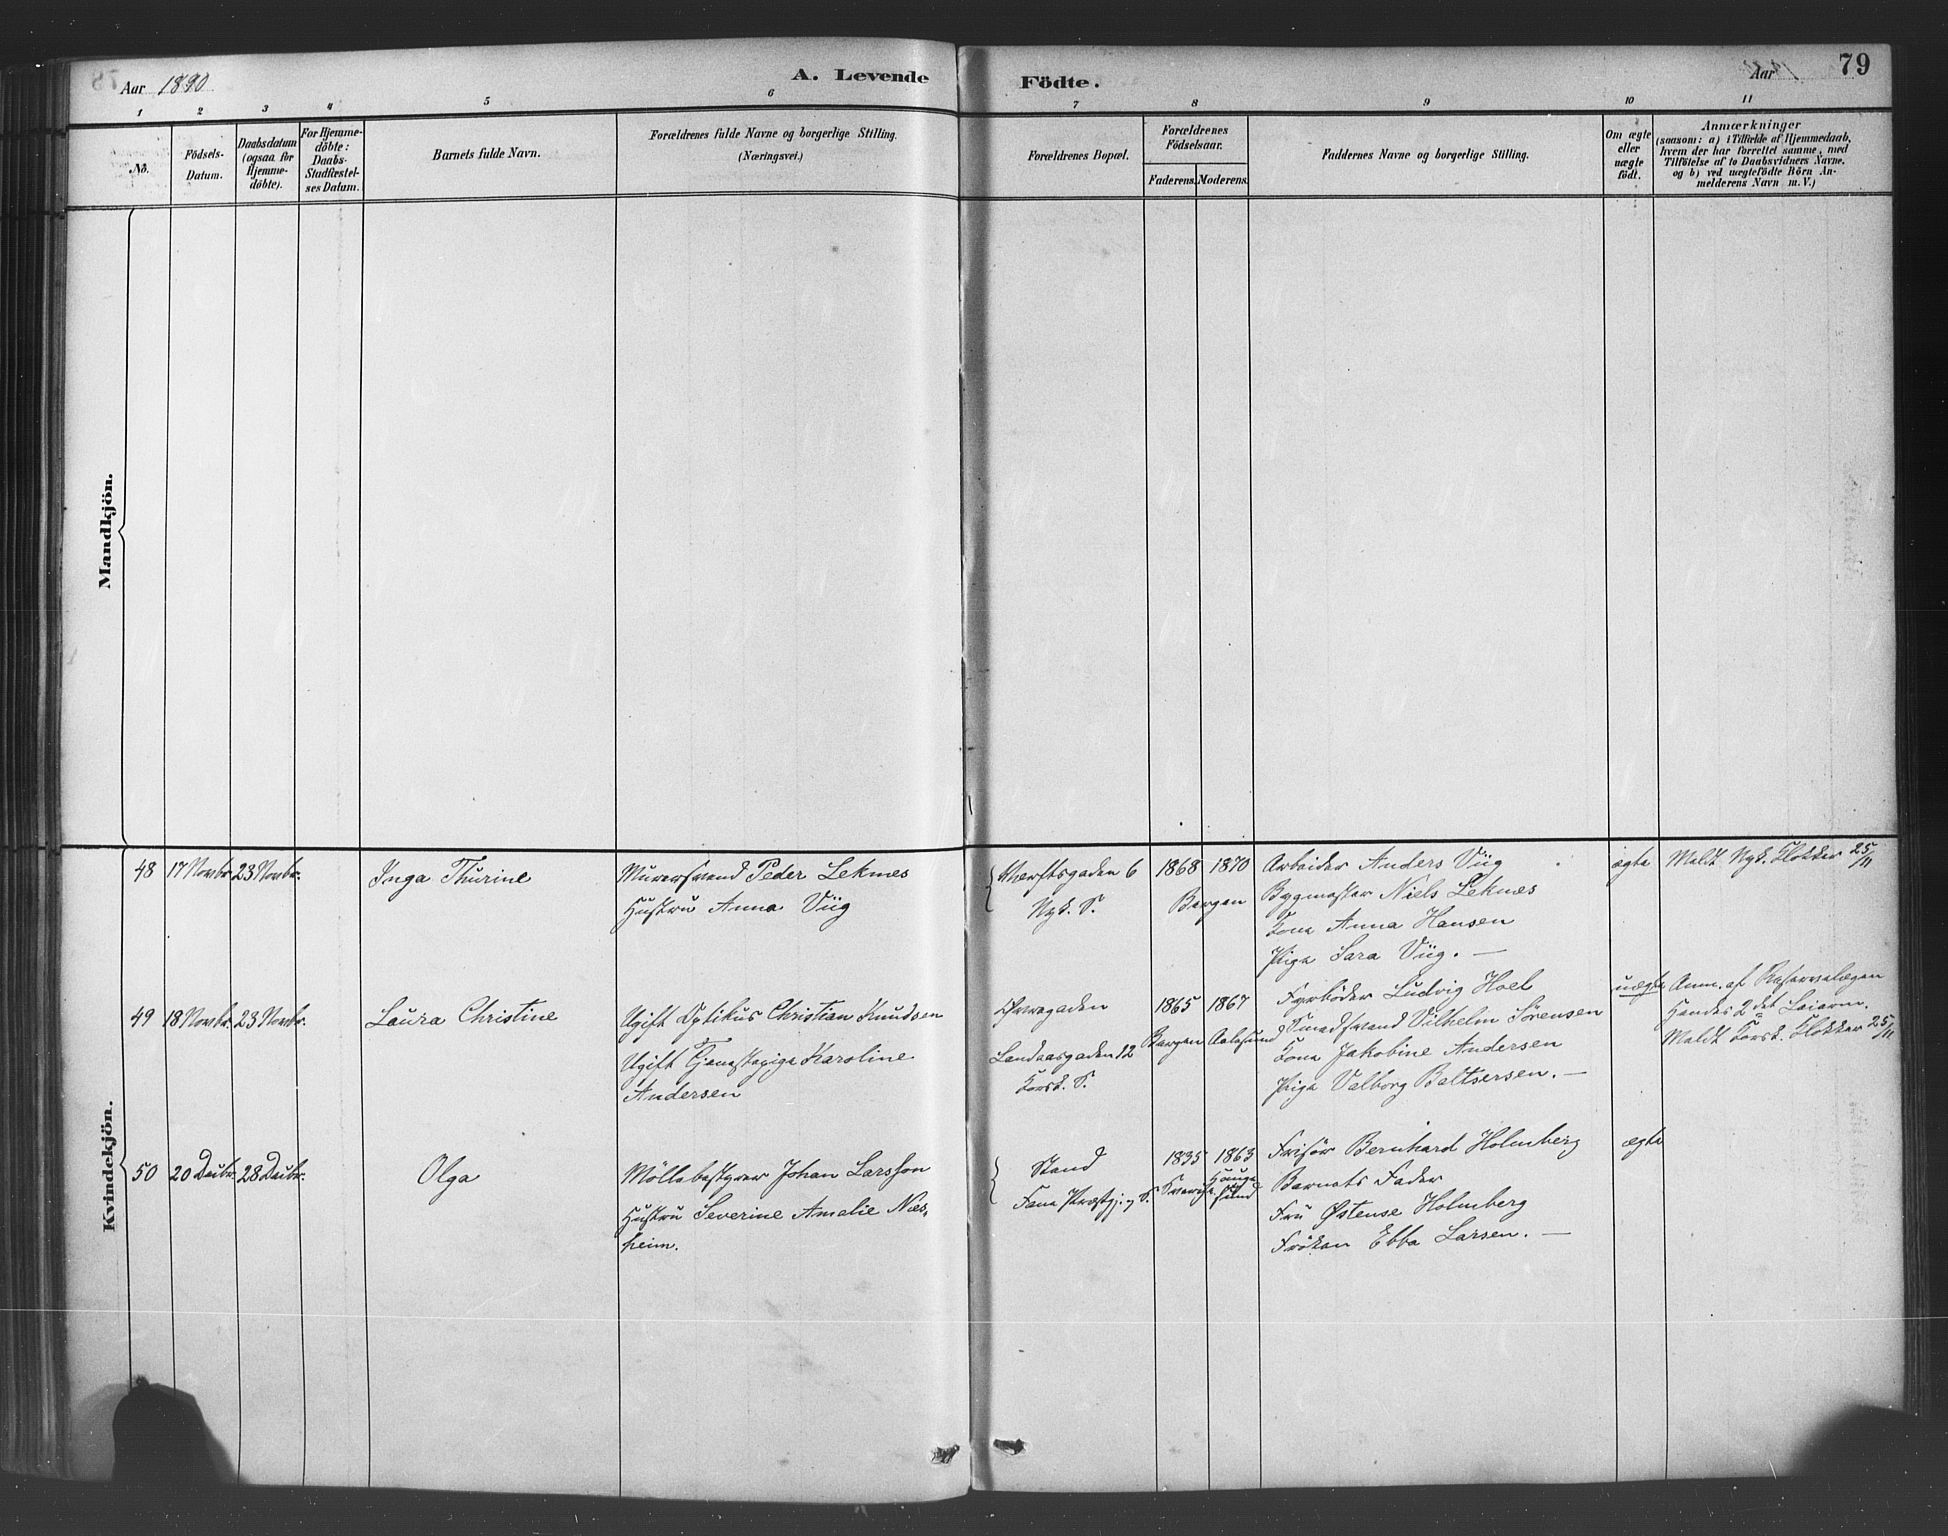 Aar 1890
A. Levende
Födte.
Aar
79
1 2 3 4 5 6 7 8 9 10 11
No.
Födsels-
Datum.
Daabsdatum
(ogsaa for
Hjemme-
döbte).
For Hjemme-
döbte:
Daabs-
Stadfæstel-
ses Datum.
Barnets fulde Navn.
Forældrenes fulde Navne og borgerlige Stilling.
(Næringsvei.)
Forældrenes Bopæl.
Forældrenes
Födselsaar.
Faderens. Moderens.
Faddernes Navne og borgerlige Stilling.
Om ægte
eller
uægte
födt.
Anmærkninger
(saasom: a) i Tilfælde af Hjemmedaab,
hvem der har forrettet samme, med
Tilföielse af to Daabsvidners Navne.
og b) ved uægtefödte Börn An-
melderens Navn m. V.)
Mandkjön.
Kvindekjön.
48
17 Novbr.
23 Novbr.
Inga Thurine
Murersvend Peder Lekmes
Hustru Anna Viig
Werftsgaden 6
Nyk. S.
1868 1870
Bergen
Arbeider Anders Viig
Bygmester Niels Lekmes
Kone Anna Hansen
Pige Sara Viig. —
ægte
Meldt Nyk. Klokker 25/11
49
18 Novbr.
23 Novbr.
Laura Christine
Ugift Optikus Christian Knudsen
Ugift Tjenestepige Karoline
Andersen
Øvregaden
Landaasgaden 12
Korsk. S.
1865 1867
Bergen Aalesund
Fyrböder Ludvig Hoel
Smedsvend Vilhelm Sörensen
Kone Jakobine Andersen
Pige Valborg Baltsersen. —
uægte
Anm. af Reservelægen
Hendes 2det Leierm.
Meldt Korsk. Klokker 25/11
50
20 Decbr.
28 Decbr.
Olga
Möllebestyrer Johan Larsson
Hustru Severine Amalie Næs-
heim.
Stend
Fane Præstgj. S.
1835 1863
Sverige Hauge
sund
Frisör Bernhard Holmberg
Barnets Fader
Fru Østense Holmberg
Fröken Ebba Larsen. —
ægte